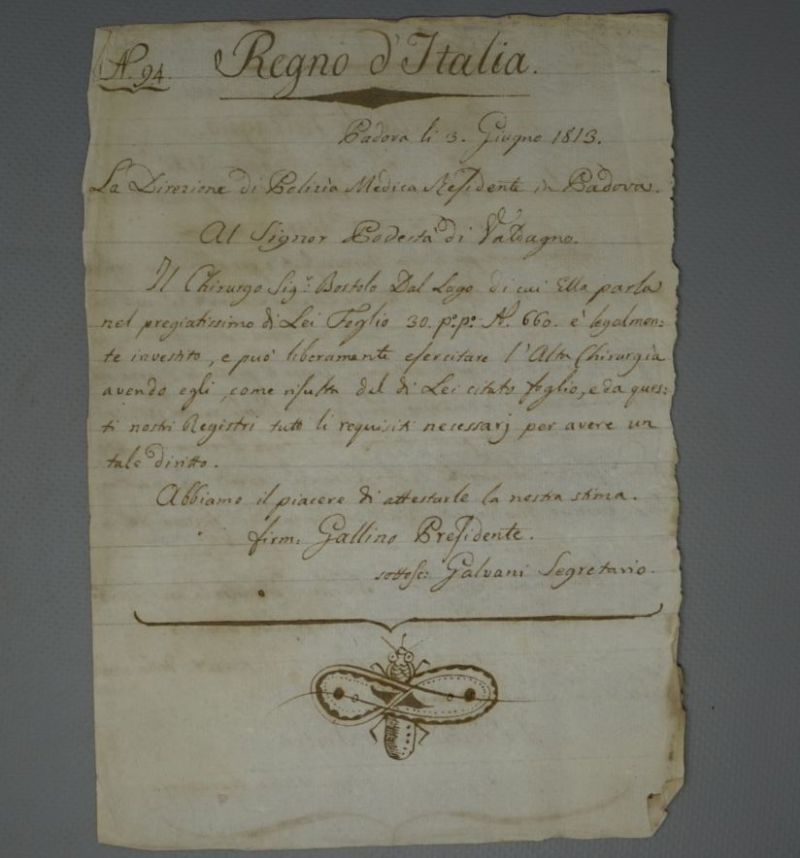 N. 94.
Regno d'Italia.
Padova li 3. Giugno 1813.
La Direzione di Polizia Medica Residente in Padova.
Al Signor Podestà di Valdagno.
Il Chirurgo Sig.r Bortolo Dal Lago di cui Ella parla
nel pregiatissimo di Lei Foglio 30. p.o p.o N. 660. è legalmen:
te investito, e può liberamente esercitare l'Alta Chirurgia
avendo egli, come risulta dal di Lei citato foglio, e da ques:
ti nostri Registri tutti li requisiti necessarj per avere un
tale diritto.
Abbiamo il piacere di attestarle la nostra stima.
firm: Gallino Presidente.
sottosc: Galvani Segretario.